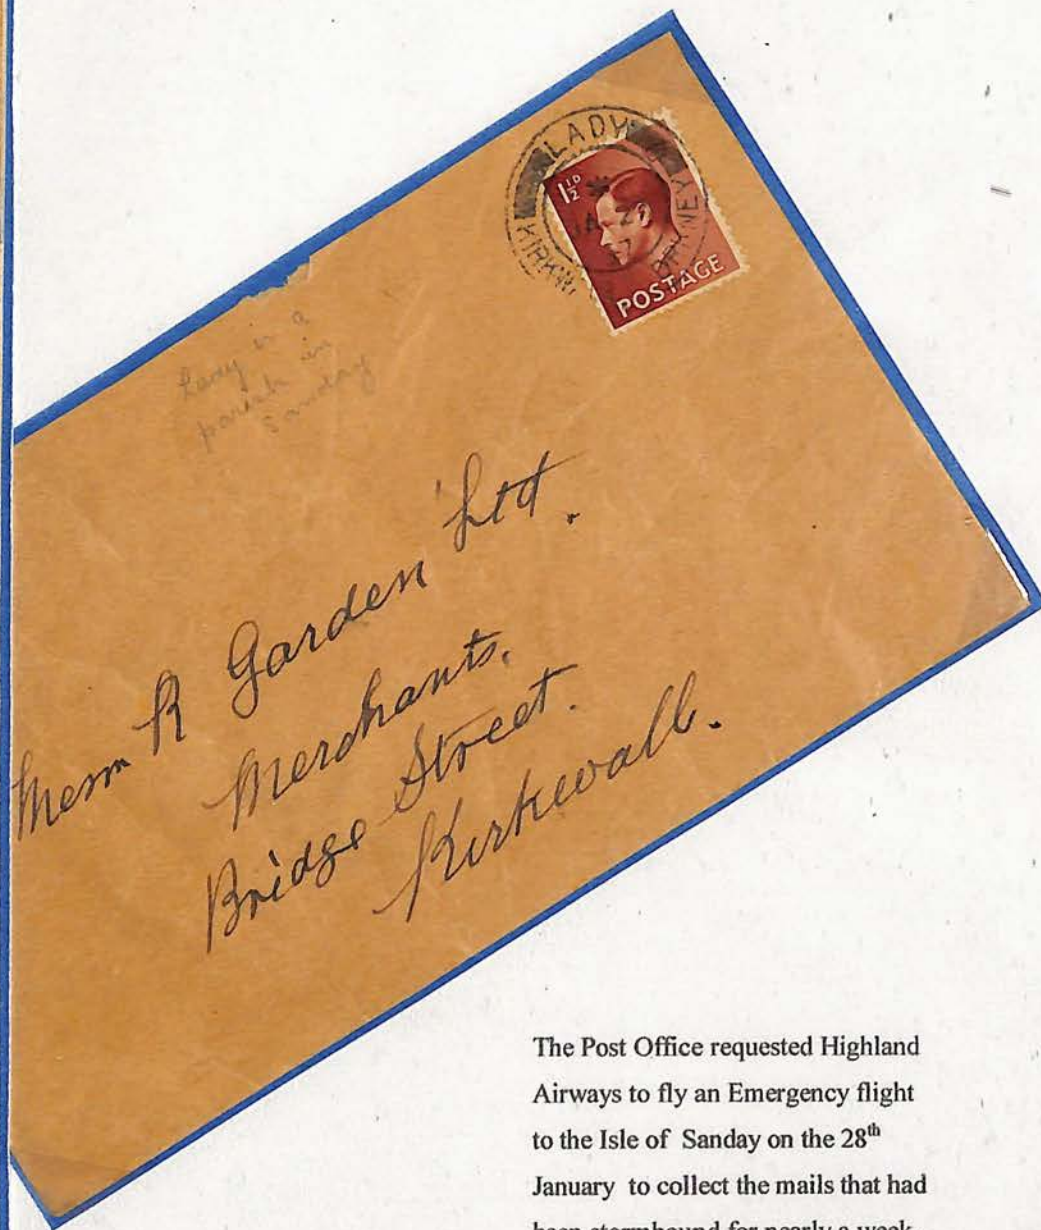 LADY
KIRKW
ORKNEY
JA 2
1½D
POSTAGE
Lady is a
parish in
Sanday
Messrs R Garden Ltd.
Merchants.
Bridge Street.
Kirkwall.
The Post Office requested Highland
Airways to fly an Emergency flight
to the Isle of Sanday on the 28th
January to collect the mails that had
been stormbound for nearly a week